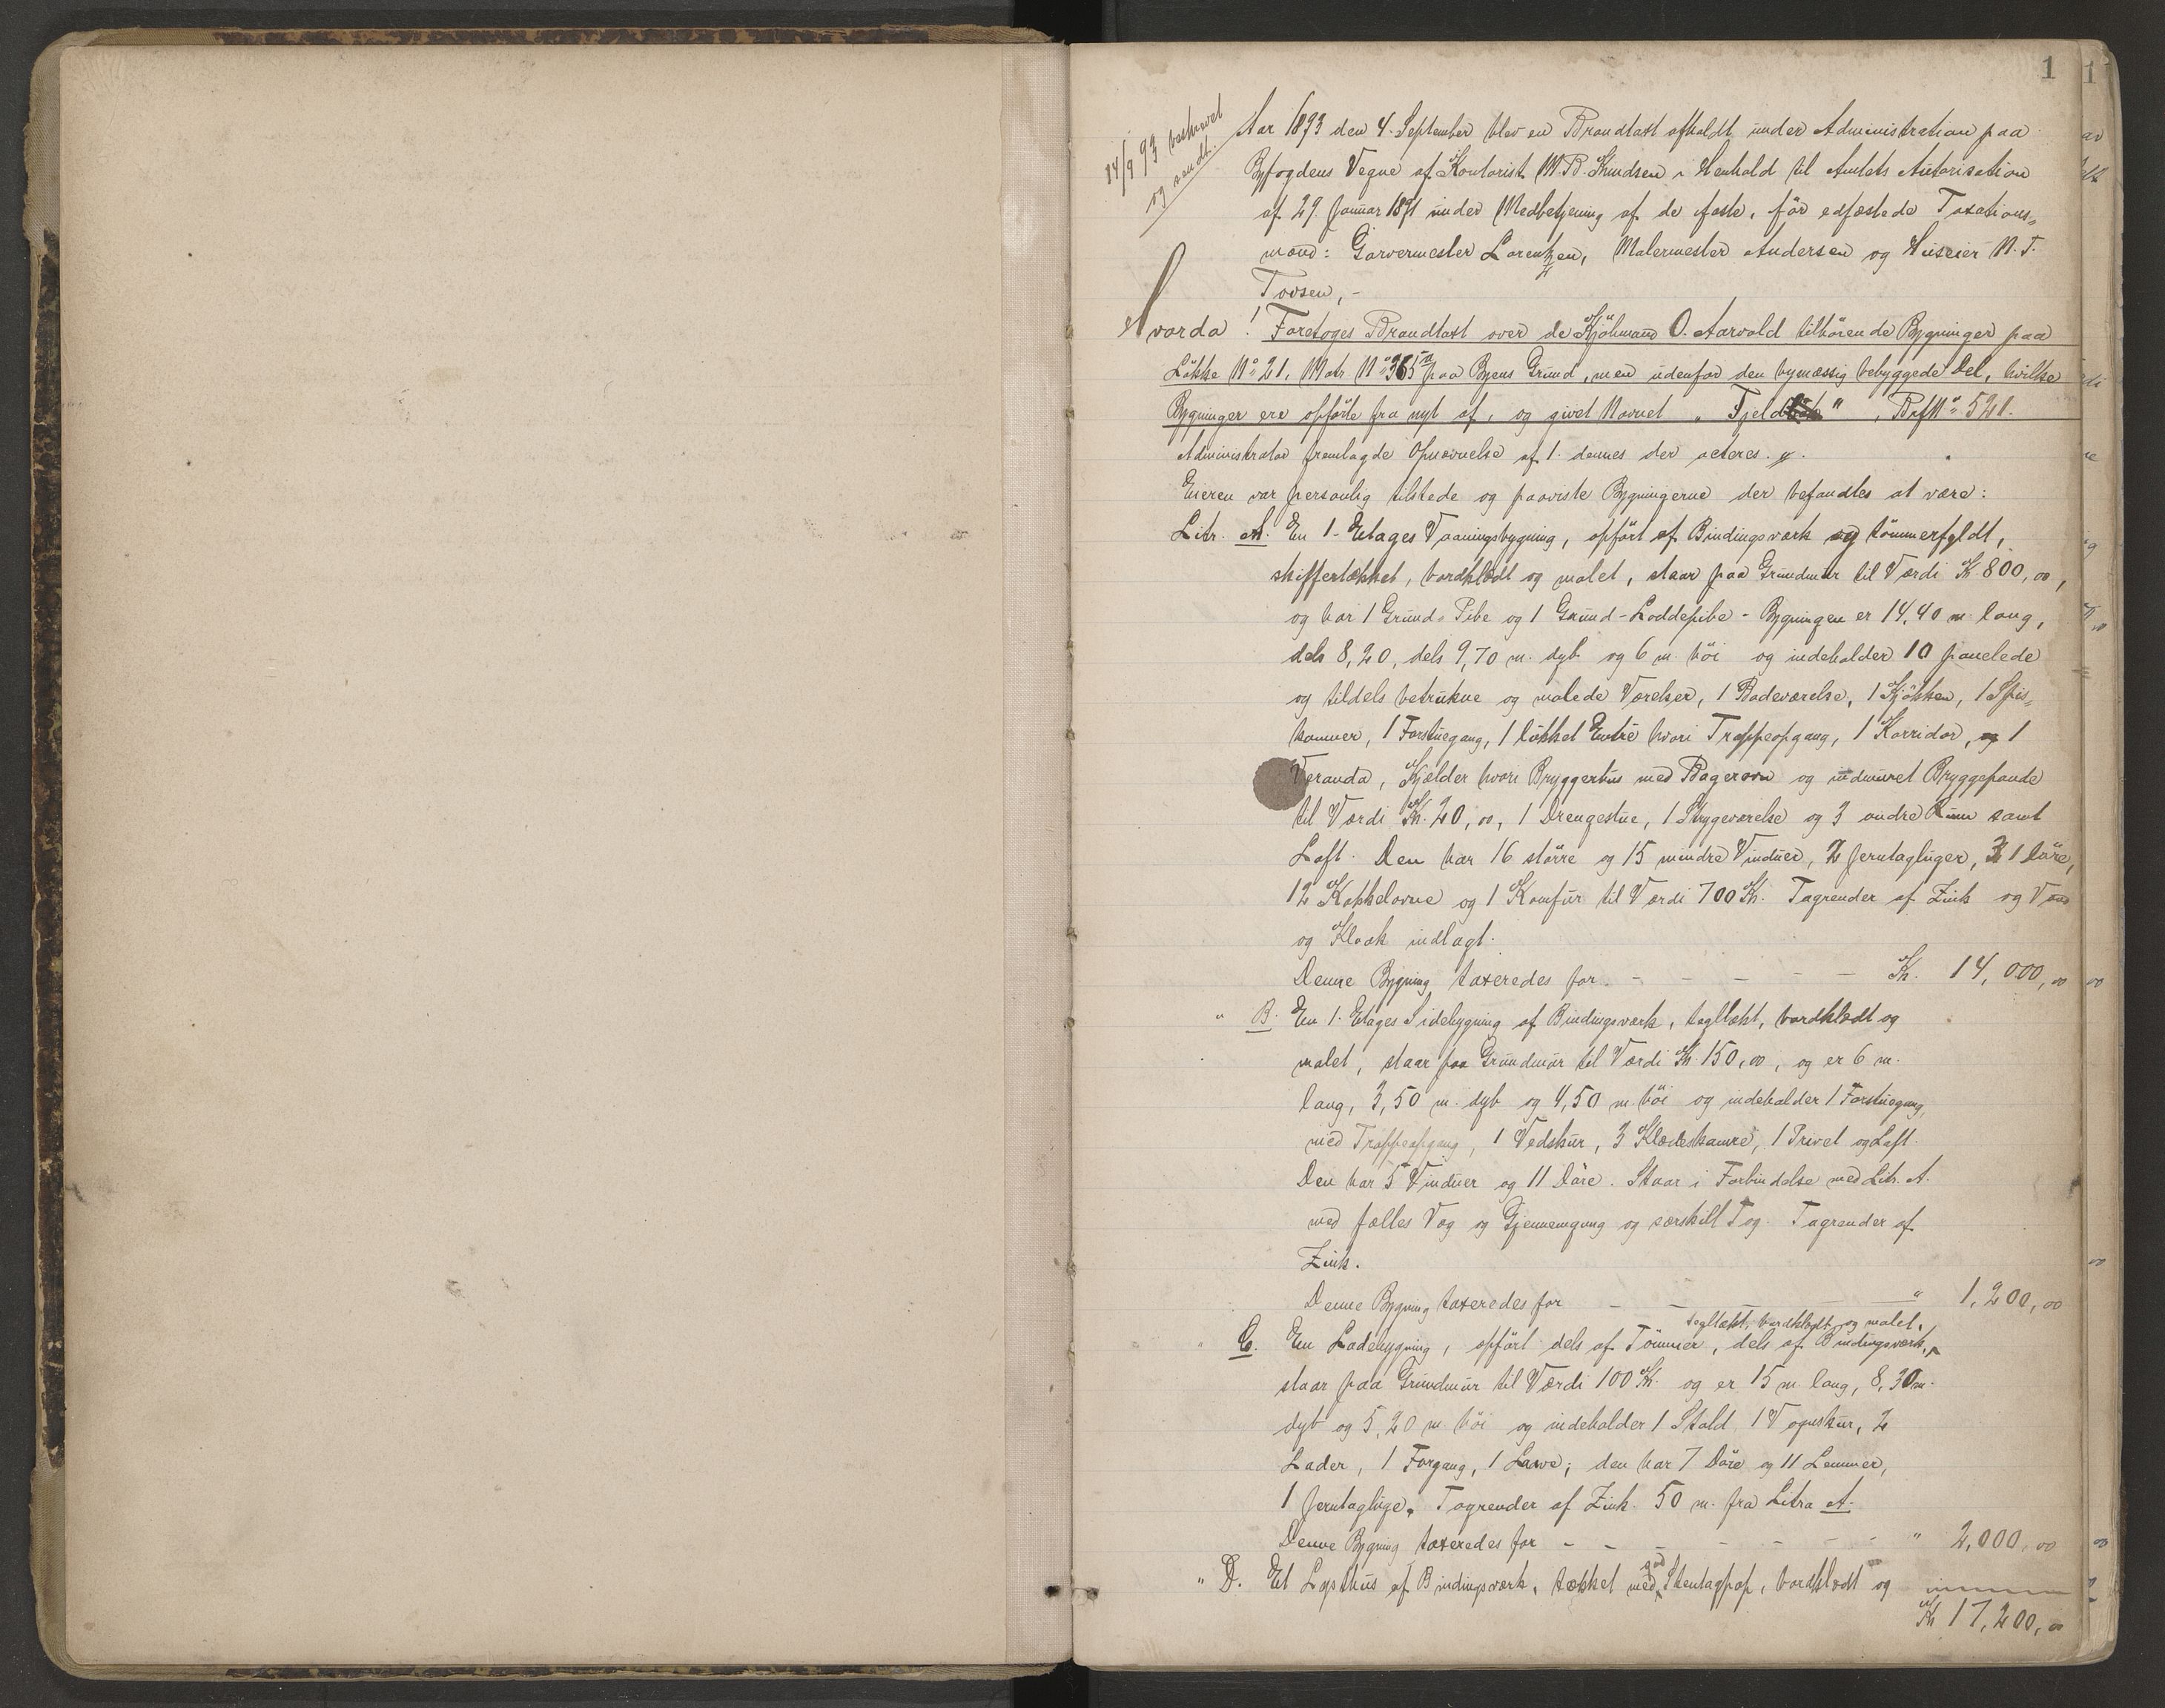 1
14/9 93 beskrevet
og sendt.
Aar 1893 den 4. September blev en Brandtaxt afholdt under Administration paa
Byfogdens Vegne af Kontorist M. B. Knudsen i Henhold til Amtets Autorisation
af 29. Januar 1891 under Medbetjening af de faste, før edfæstede Taxations-
mænd: Garvermester Lorentzen, Malermester Andersen og Huseier N. T.
Tovsen, -
Hvorda! Foretoges Brandtaxt over de Kjøbmand O. Aarvold tilhörende Bygninger paa
Løkke No 21, Matr No 365a paa Byens Grund, men udenfor den bymæssig bebyggede Del, hvilke
Bygninger ere opförte fra nyt af, og givet Navnet „Fjeld " , Brf No 521.
Administrator fremlagde Opnævnelse af 1. dennes der acteres.
Eieren var personlig tilstede og paaviste Bygningerne der befandtes at være:
Litr. A. En 1-Etages Vaaningsbygning, opfört af Bindingsværk og tömmerfyldt,
skiffertækket, bordklædt og malet, staar paa Grundmur til Værdi K 800,00,
og har 1 Grund-Pibe og 1 Grund-Loddepibe - Bygningen er 14,40 m. lang,
dels 8,20, dels 9,70 m. dyb og 6 m. höi og indeholder 10 panelede
og tildels betrukne og malede Værelser, 1 Badeværelse, 1 Kjökken, 1 Spis-
kammer, 1 Forstuegang, 1 lukket Entré hvori Trappeopgang, 1 Korridor, og 1
Veranda, Kjelder hvori Bryggerhus med Bagerovn og indmuret Bryggepande
til Værdi Kr. 20,00, 1 Drengestue, 1 Strygeværelse og 3 andre Rum samt
Loft. Den har 16 större og 15 mindre Vinduer, 2 Jerntagluger, 31 Döre,
12 Kakkelovne og 1 Komfur til Værdi 700 Kr. Tagrender af Zink og Vand
og Kloak indlagt.
Denne Bygning taxeredes for - - - - - Kr. 14,000,00
" B. En 1. Etages Sidebygning af Bindingsværk, tegltækt, bordklædt og
malet, staar paa Grundmur til Værdi Kr. 150,00, og er 6 m.
lang, 3,50 m. dyb og 4,50 m. höi og indeholder 1 Forstuegang
med Trappeopgang, 1 Vedskur, 3 Klædeskamre, 1 Privet og Loft.
Den har 5 Vinduer og 11 Döre. Staar i Forbindelse med Litr. A.
med fælles Væg og Gjennemgang og særskilt Tag. Tagrender af
Zink.
Denne Bygning taxeredes for - - - - " 1,200,00
tegltækt, bordklædt og malet,
" C. En Ladebygning, opfört dels af Tömmer, dels af Bindingsværk,
staar paa Grundmur til Værdi 100 Kr. og er 15 m. lang, 8,30 m.
dyb og 5,20 m. höi og indeholder 1 Stald, 1 Vognskur, 2
Lader, 1 Forgang, 1 Laave; den har 7 Döre og 11 Lemmer,
1 Jerntagluge. Tagrender af Zink. 50 m. fra Litra A.
Denne Bygning taxeredes for - - - - - - " 2,000,00
" D. Et Lysthus af Bindingsværk, tækket med god Stentagpap, bordklædt og
Kr 17,200,00